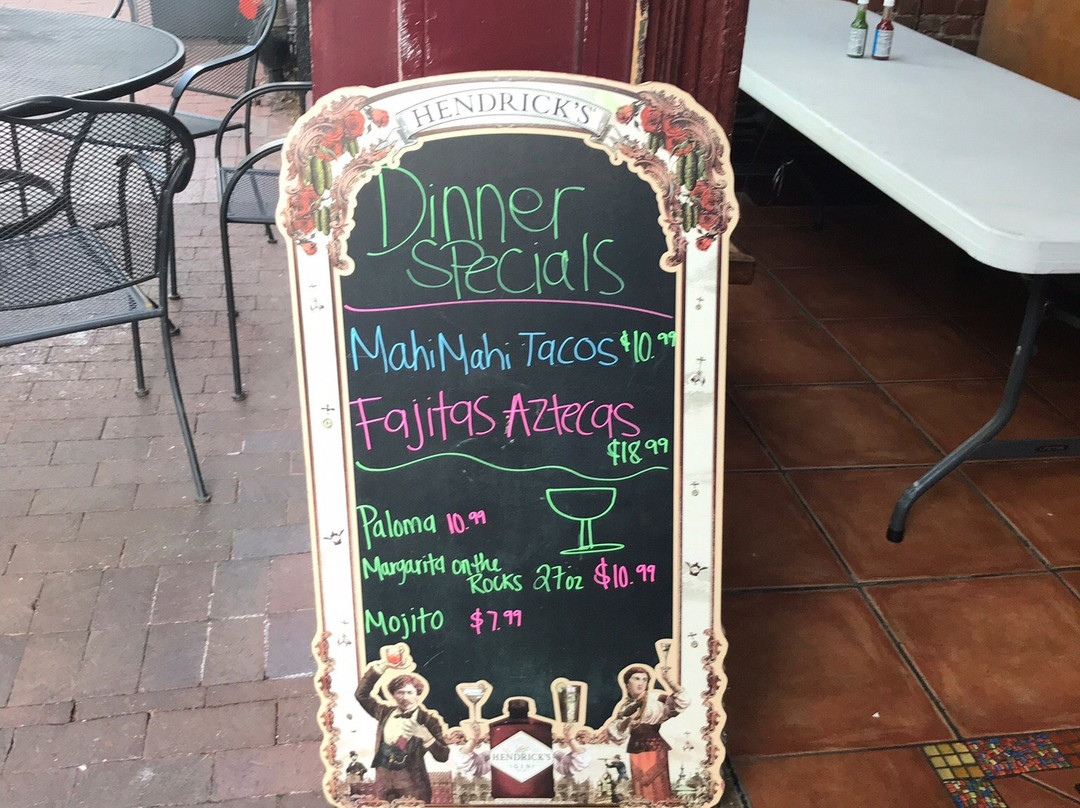 HENDRICK'S
Dinner
Specials
Mahi Mahi Tacos $10.99
Fajitas Aztecas
$18.99
Paloma 10.99
Margarita on the
Rocks 27oz $10.99
Mojito $7.99
HENDRICK'S
GIN